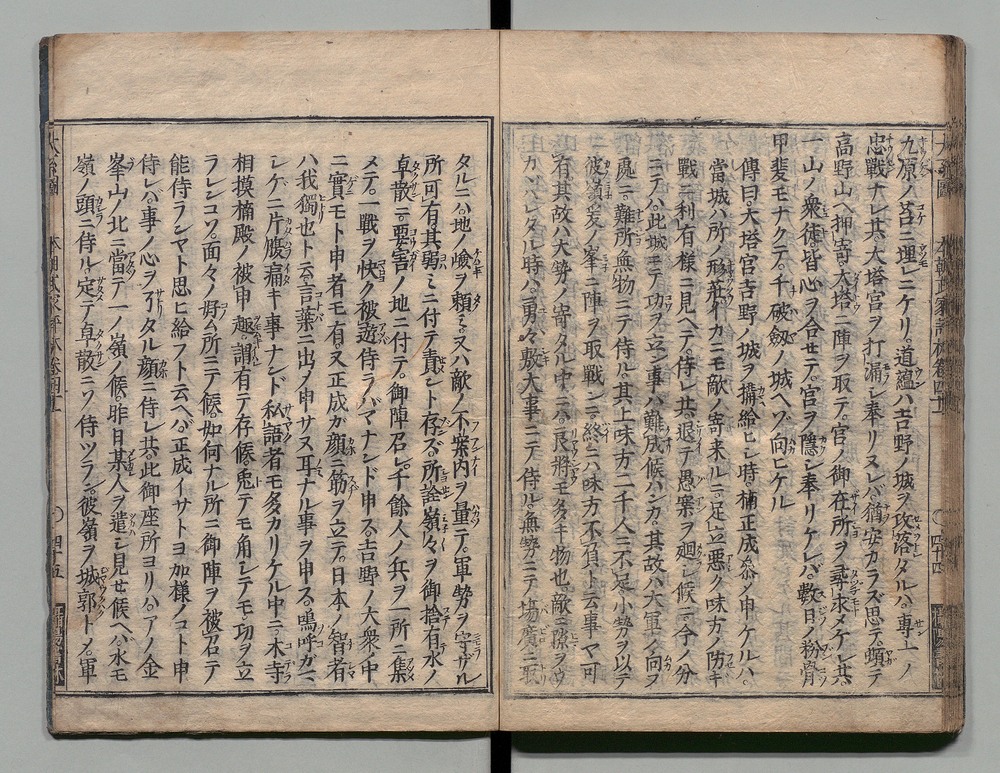 九原ノ苔ニ埋レニケリ。道蘊ハ吉野ノ城ヲ攻落タルハ、専一ノ
忠戰ナレ共、大塔宮ヲ打漏シ奉リヌレバ、猶安カラズ思テ、頓テ
高野山ヘ押寄、大塔ニ陣ヲ取テ、宮ノ御在所ヲ尋求メケレ共、
一山ノ衆徒皆心ヲ合セテ、宮ヲ隠シ奉リケレバ、數日ノ粉骨
甲斐モナクテ、千破劔ノ城ヘゾ向ヒケル
傳曰、大塔宮吉野ノ城ヲ搆給ヒシ時、楠正成參ノ申ケルハ、
當城ハ所ノ形 イカニモ敵ノ寄来ルニ足立惡ク味方ノ防キ
戰ニ利有様ニ見ヘテ侍レ共、退テ愚案ヲ廻シ候ニ、今ノ分
ニテハ、此城ニテ功ヲ立ン事ハ難成候ハンカ、其故ハ大軍ノ向フ
處ニ、難所無物ニテ侍ル、其上味方二千人ニ不足小勢ヲ以テ
彼嶺 ノ峯ニ陣ヲ取戰ンニ、終ニハ味方不負ト云事マ可
有、其故ハ大勢ノ寄タル中ニハ、良將モ多キ物也、敵ニ隙ヲウ
カヾハレタル時ハ、勇々敷大事ニテ侍ル、無勢ニテ場廣ニ取
タルニハ、地ノ嶮ヲ頼ミ、又ハ敵ノ不案内ヲ量テ、軍勢ヲ宇ザル
所可有、其弱ミニ付テ責ント存ズ、所詮嶺々ヲ御捨有、水ノ
卓散ニ、要害ノ地ニ付テ、御陣召レ、千餘人ノ兵ヲ一所ニ集
メテ、一戰ヲ快ク被遊侍ラバマナンド申ス、吉野ノ大衆ノ中
ニ實モト申者モ有、又正成ガ顔ニ筋ヲ立テ、日本ノ智者
ハ我獨也ト云言葉ニ出ノ申サヌ耳ナル事ヲ申ル、嗚呼ガマ
シケニ片腹痛キ事ナンド私語者モ多カリケル中ニ、木寺
相摸、楠殿ノ被申趣、謂有テ存候、兎テモ角シテモ、功ヲ立
ラレンコソ、面々ノ好ム所ニテ候、如何ナル所ニ御陣ヲ被召テ
能侍ランヤト思ヒ給フト云ヘバ、正成イサトヨ加様ノコト申
侍レバ、事ノ心ヲ引タル顔ニ侍レ共、此御座所ヨリハ、アノ金
峯山ノ北ニ當テ一ノ嶺ノ候、昨日某人ヲ遣シ見セ候ヘバ、水モ
嶺ノ頭ニ侍ル、定テ卓散ニコソ侍ツラン、彼嶺ヲ城郭トノ、軍